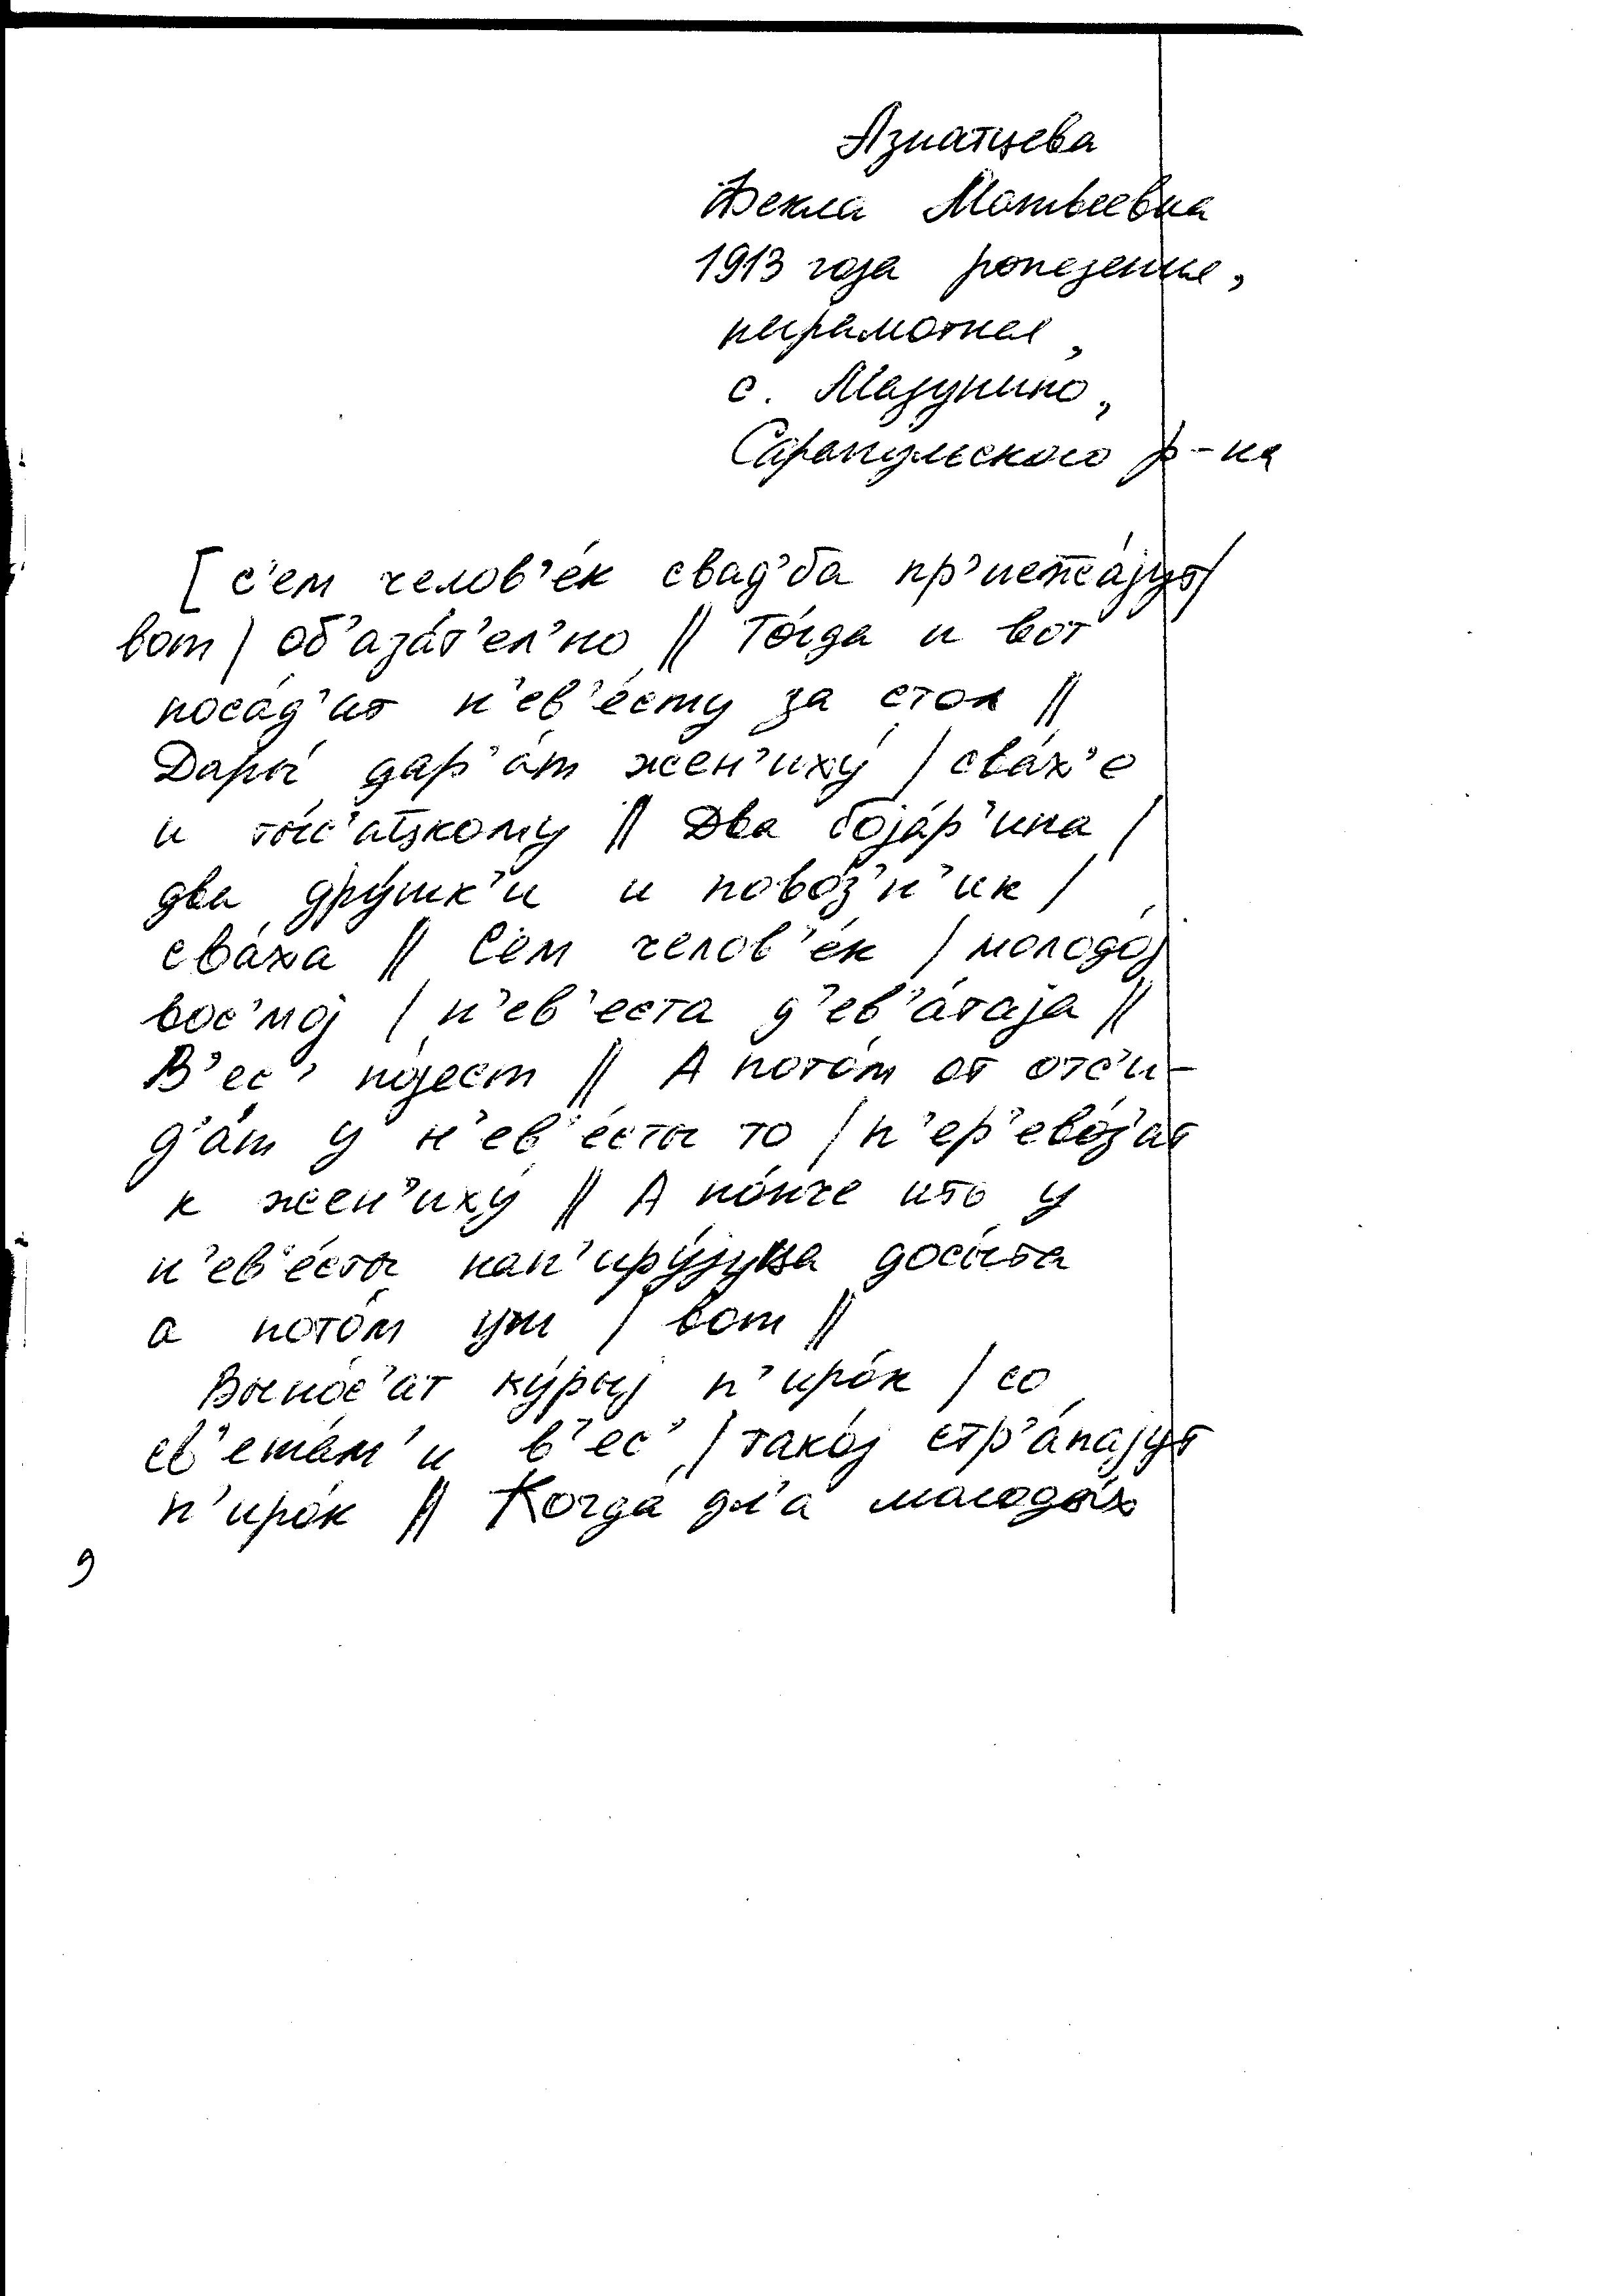 Азиатцева
Фекла Матвеевна
1913 года рождения,
неграмотная,
с. Мазунино,
Сарапульского р-на
[с'ем челов'е́к свад'ба пр'иежжа́јут/
вот | об'аза́т'ел'но || То́гда и вот
поса́д'ат н'ев'е́сту за стол ||
Дары́ дар'а́т жен'иху́ | сва́х'е
и ты́с'ацкому || Два боја́р'ина |
два дру́шк'и и пово́з'н'ик |
сва́ха || Сем челов'е́к | молодо́ј
вос'мој | н'ев'еста д'ев'а́таја ||
В'ес' по́јест || А пото́м от отс'и-
д'а́т у н'ев'е́сты то | п'ер'ево́з'ат
к жен'иху́ || А по́нче ить у
н'ев'е́сты нап'иру́јуца досы́та
а пото́м уш | вот ||
Выно́с'ат ку́рыј п'иро́к | со
св'ета́м'и в'ес' | тако́ј стр'а́пајут
п'иро́к || Когда́ дл'а молоды́х
9